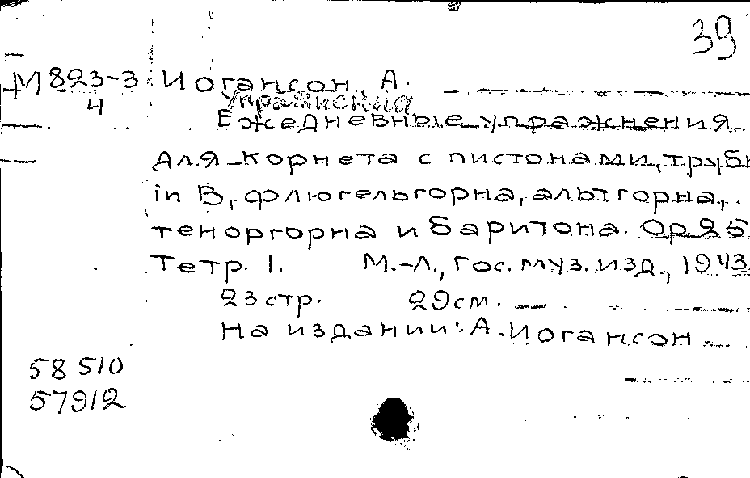 39
М 823-3 Иогансон, А.
4
Ежедневные упражнения
для корнета с пистонами, труб
in B, флюгельгорна, альтгорна,
теноргорна и баритона. Op 25
Тетр. I. М.-Л., Гос. муз. изд., 1943
23 стр. 29 см.
На издании: А. Иогансон
58 510
57912